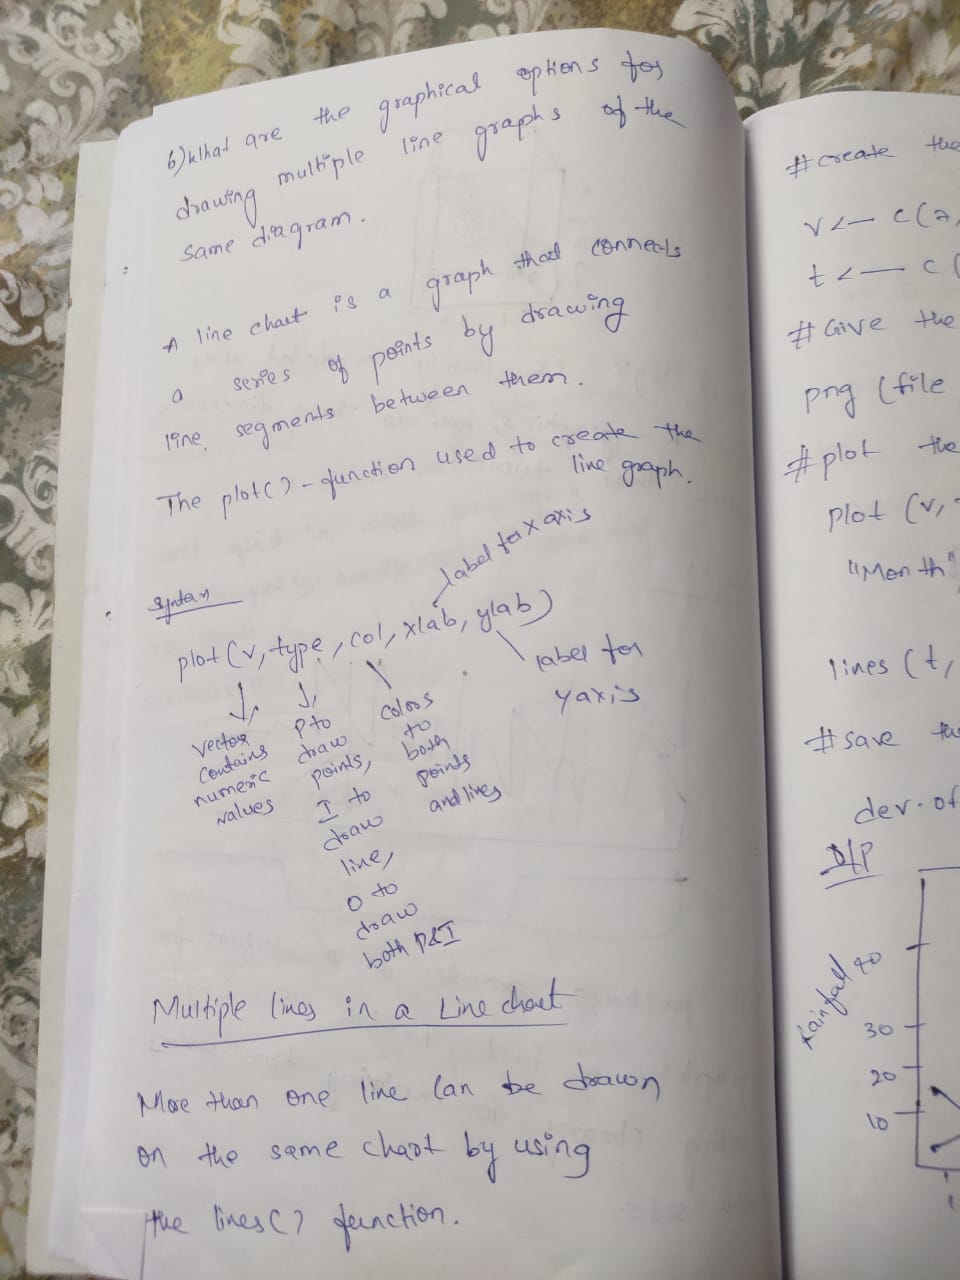 6) What are the graphical options for
drawing multiple line graphs of the
same diagram.
A line chart is a graph that connects
a series of points by drawing
line segments between them.
The plot() - function used to create the
line graph.
Syntax
label for x axis
plot (v, type, col, xlab, ylab)
label for
y axis
vector
contains
numeric
values
P to
draw
points,
I to
draw
line,
O to
draw
both P&I
colors
to
both
points
and lines
Multiple lines in a Line chart
More than one line can be drawn
on the same chart by using
the lines() function.
#create the
v <— c(7,
t <— c(
# Give the
png (file
#plot the
plot (v,
"Month"
lines (t,
#save the
dev.of
O/P
Rainfall
40
30
20
10